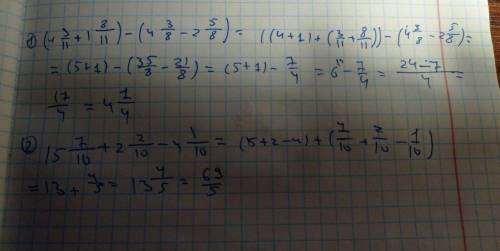 1) (4 3/11 + 1 8/11) - (4 3/8 - 2 5/8) = ((4+1) + (3/11 + 8/11)) - (4 3/8 - 2 5/8) =
= (5+1) - (35/8 - 21/8) = (5+1) - 7/4 = 6 - 7/4 = 24-7/4 =
17/4 = 4 1/4
2) 15 7/10 + 2 2/10 - 4 1/10 = (15+2-4) + (7/10 + 2/10 - 1/10)
= 13 + 4/5 = 13 4/5 = 69/5